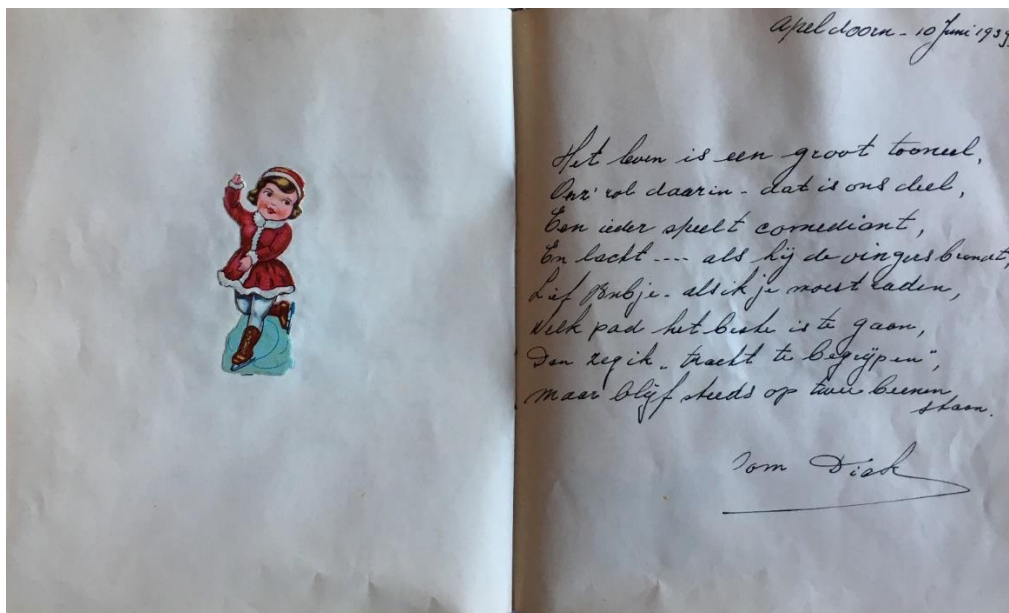 Apeldoorn - 10 Juni 1939
Het leven is een groot tooneel,
Onz' rol daarin - dat is ons deel,
Een ieder speelt comediant,
En lacht ---- als hij de vingers brandt,
Lief - als ik je moest raden,
Welk pad het beste is te gaan,
Dan zeg ik „tracht te begrijpen",
maar blijf steeds op twee beenen
staan.
Oom Dick